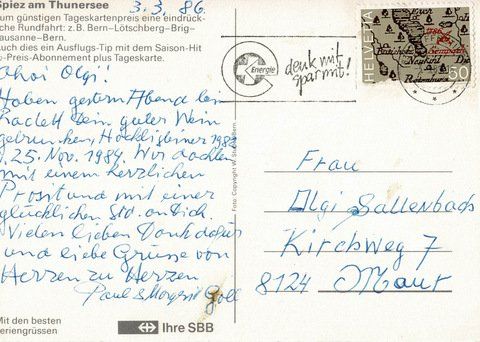 Spiez am Thunersee
3.3.86.
um günstigen Tageskartenpreis eine eindrück-
che Rundfahrt: z.B. Bern–Lötschberg–Brig–
ausanne–Bern.
uch dies ein Ausflugs-Tip mit dem Saison-Hit
-Preis-Abonnement plus Tageskarte.
Ahoi Olgi!
Haben gestern Abend bei
Raclett Dein guter Wein
getrunken,
25. Nov. 1984. Wir dachten
mit einem herzlichen
Prosit und mit einer
glücklichen Std. an Dich.
Vielen lieben Dank dafür
und liebe Grüsse von
Herzen zu Herzen
Paul & Margrit Goll
Mit den besten
eriengrüssen
Ihre SBB
Foto: Copyright W. Bern
Energie
denk mit
spar mit!
HELVETIA
50
Frau
Olgi Sallenbach
Kirchweg 7
8124 Maur